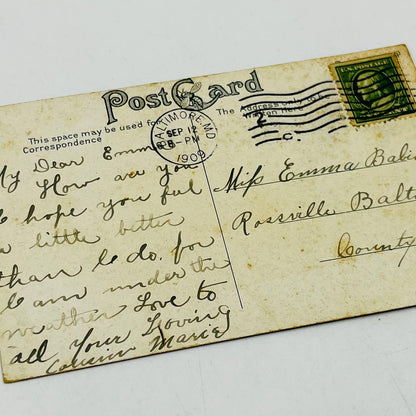 Post Card
This space may be used for
Correspondence
The Address only to be
Written Here
BALTIMORE, MD.
SEP 12
8-PM
1909
2
C.
U.S. POSTAGE
My Dear Emma
How are you
I hope you ful
a little better
than I do. for
I am under the
weather Love to
all your Loving
Cousin Marie
Miss Emma
Rossville Balto
County